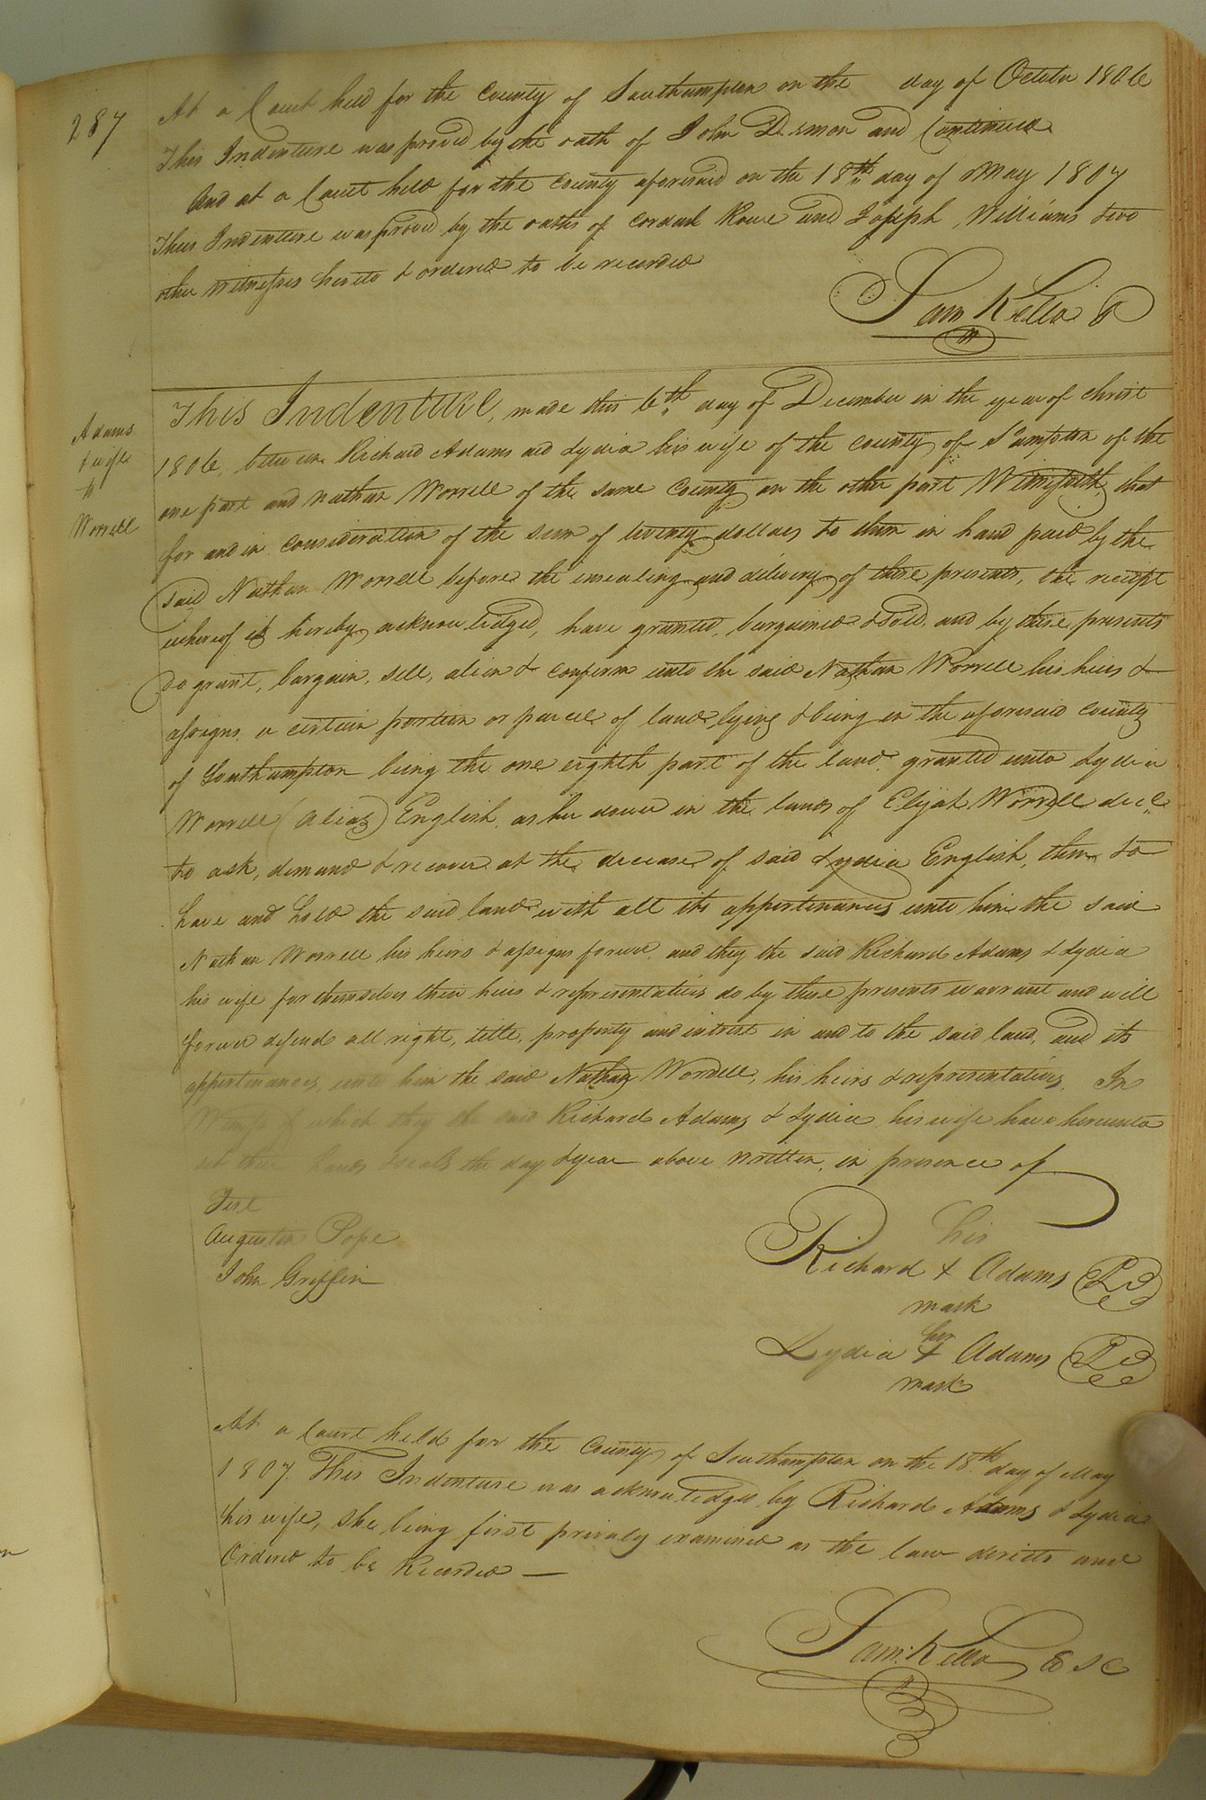 287
At a Court held for the County of Southampton on the day of October 1806
This Indenture was proved by the oath of John Demon and Continued
And at a Court held for the county aforesaid on the 18th day of May 1807
This Indenture was proved by the oaths of Cordall Rowe and Joseph Williams two
other witnesses hereto & ordered to be recorded
Sam Kello
Adams
& wife
to
Worrell
This Indenture, made this 6th day of December in the year of Christ
1806, between Richard Adams and Lydia his wife of the county of S'ampton of the
one part and Nathan Worrell of the same County on the other part Witnesseth, that
for and in consideration of the sum of twenty dollars to them in hand paid by the
said Nathan Worrell before the ensealing and delivery of these presents, the receipt
whereof is hereby acknowledged, have granted, bargained & sold and by these presents
do grant, bargain, sell, alien & confirm unto the said Nathan Worrell his heirs &
assigns a certain portion or parcel of land lying & being in the aforesaid county
of Southampton being the one eighth part of the land granted unto Lydia
Worrell (alias) English, as her dower in the lands of Elijah Worrell decd
to ask, demand & recover at the decease of said Lydia English, then to
have and hold the said land with all its appertinances unto him the said
Nathan Worrell his heirs & assigns forever and they the said Richard Adams & Lydia
his wife for themselves their heirs & representatives do by these presents warrant and will
forever defend all right, title, property and intrest in and to the said land, and its
appertinances unto him the said Nathan Worrell, his heirs & representatives. In
which they the said Richard Adams & Lydia his wife have hereunto
set their hands & seals the day & year above written, in presence of
Test
Augustin Pope
John Griffin
his
Richard + Adams LS
mark
her
Lydia + Adams LS
mark
At a Court held for the County of Southampton on the 18th day of May
1807. This Indenture was acknowledged by Richard Adams & Lydia
his wife, she being first privaly examined as the law directs and
Ordered to be Recorded —
Sam: Kello